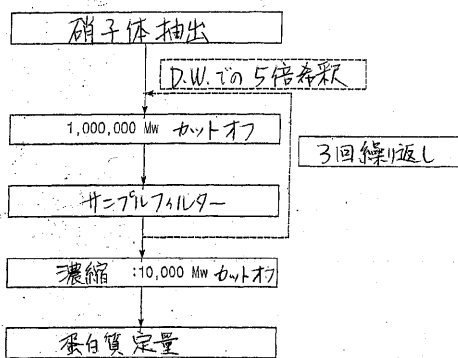 硝子体抽出
D.W.での5倍希釈
1,000,000 Mw カットオフ
3回繰り返し
サンプルフィルター
濃縮 :10,000 Mw カットオフ
蛋白質定量